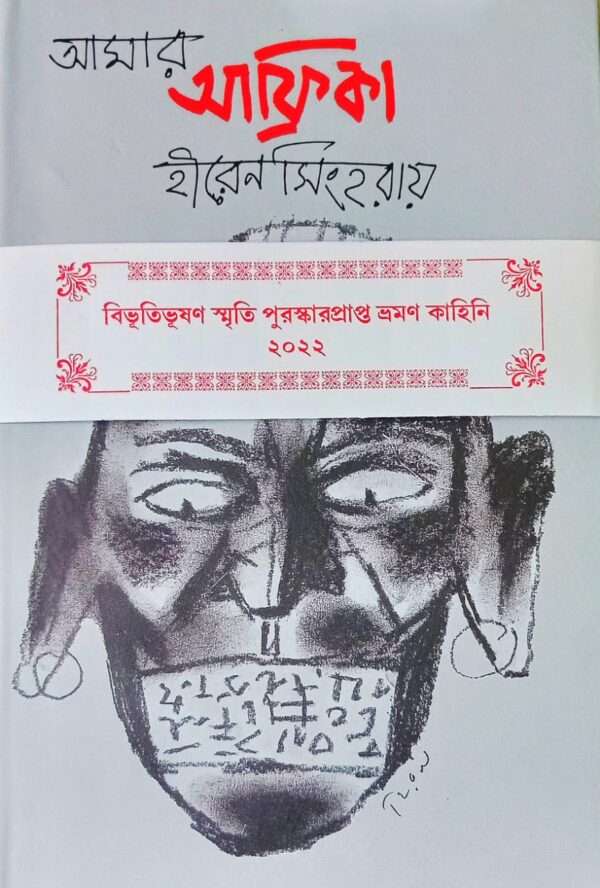 আমার
আফ্রিকা
হীরেন সিংহরায়
বিভূতিভূষণ স্মৃতি পুরস্কারপ্রাপ্ত ভ্রমণ কাহিনি
২০২২